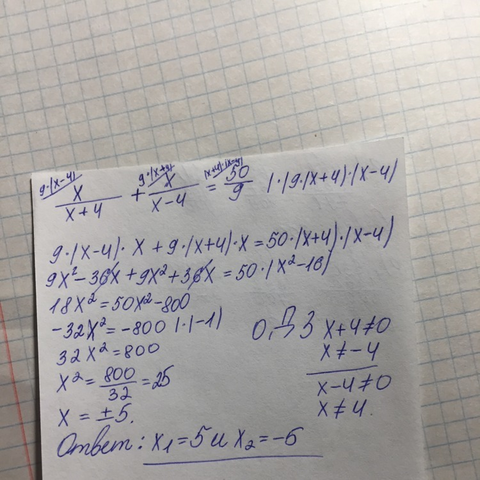 9·(x-4) 9·(x+4) (x+4)·(x-4)
x/(x+4) + x/(x-4) = 50/9 |·(9·(x+4)·(x-4)
9·(x-4)·x + 9·(x+4)·x = 50·(x+4)·(x-4)
9x² - 36x + 9x² + 36x = 50·(x² - 16)
18x² = 50x² - 800
-32x² = -800 |·(-1)
32x² = 800
x² = 800/32 = 25
x = ±5.
О,Д З x+4≠0
x ≠ -4
x-4≠0
x ≠ 4.
Ответ: x₁ = 5 и x₂ = -6